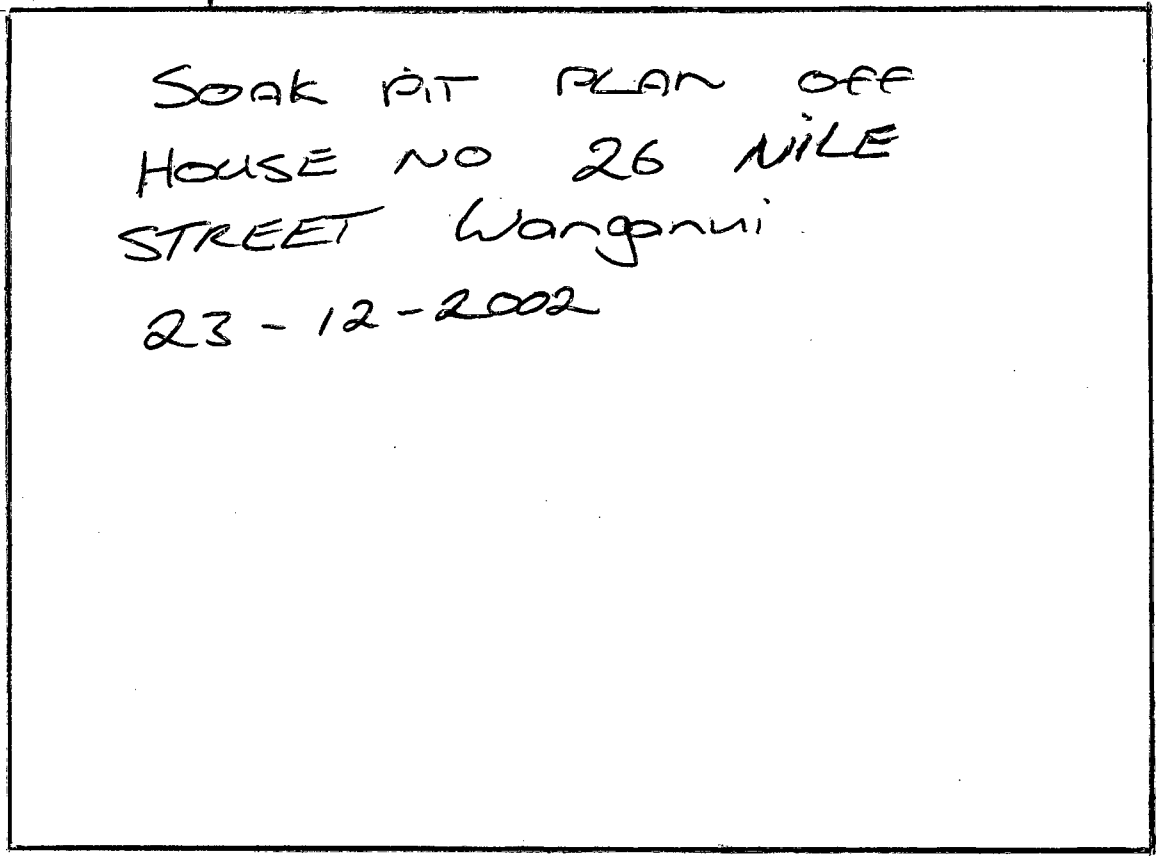 SOAK PIT PLAN OFF
HOUSE NO 26 NILE
STREET Wanganui
23-12-2002